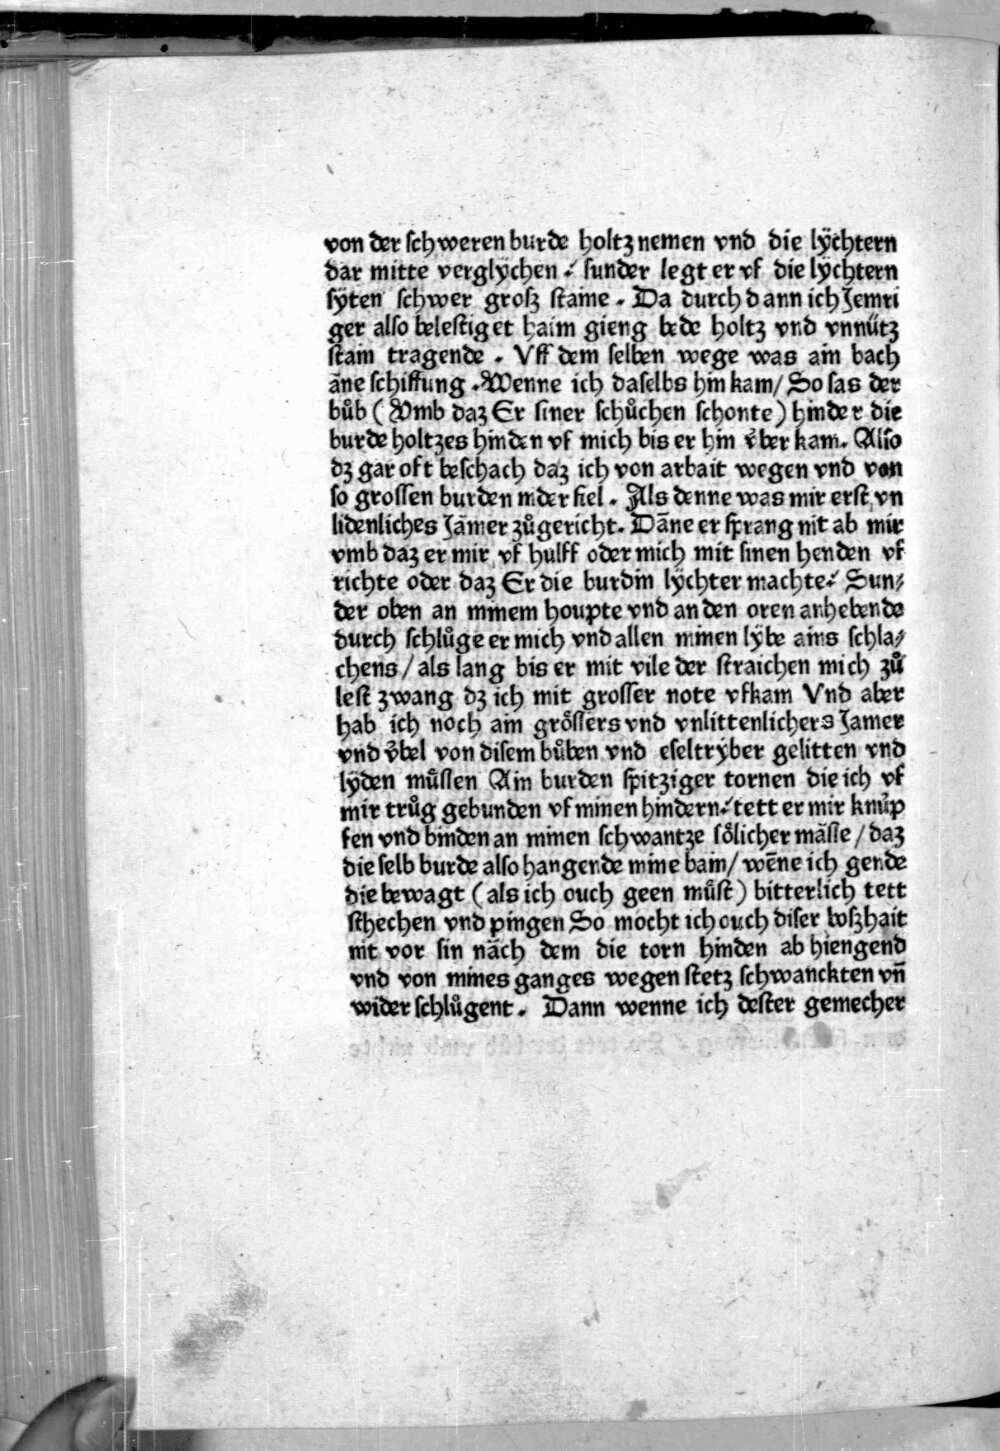 von der schweren burde holtz nemen vnd die lÿchtern
dar mitte verglÿchen ⸵ sunder legt er vf die lÿchtern
sÿten schwer grosz staine . Da durch dann ich Jemri
ger also belestiget haim gieng bede holtz vnd vnnütz
stain tragende . Vff dem selben wege was ain bach
āne schiffung . Wenne ich daselbs hin kam / So sas der
bůb ( Vmb daz Er siner schůchen schonte ) hinder die
burde holtzes hinden vf mich bis er hin v̈ber kam . Also
dz gar oft beschach daz ich von arbait wegen vnd von
so grossen burden nider fiel . Als denne was mir erst vn
lidenliches Jāmer zůgericht . Dāne er sprang nit ab mir
vmb daz er mir vf hulff oder mich mit sinen henden vf
richte oder daz Er die burdin lÿchter machte⸵ Sun⸗
der oben an minem houpte vnd an den oren anhebende
durch schlůge er mich vnd allen minen lÿbe ains schla⸗
chens / als lang bis er mit vile der straichen mich zů
lest zwang dz ich mit grosser note vfkam Vnd aber
hab ich noch ain grössers vnd vnlittenlichers Jamer
vnd v̈bel von disem bůben vnd eseltrÿber gelitten vnd
lÿden můssen Ain burden spitziger tornen die ich vf
mir trůg gebunden vf minen hindern⸵ tett er mir knüp
fen vnd binden an minen schwantze sölicher māsse / daz
die selb burde also hangende mine bain / wēne ich gende
die bewagt ( als ich ouch geen můst ) bitterlich tett
stechen vnd pingen So mocht ich ouch diser boszhait
nit vor sin nāch dem die torn hinden ab hiengend
vnd von mines ganges wegen stetz schwanckten vn̄
wider schlůgent . Dann wenne ich dester gemecher